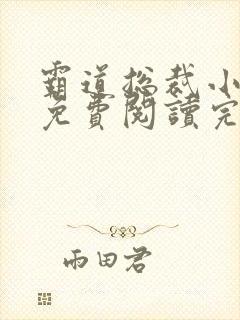 霸道总裁小
免費閱讀完
雨田君